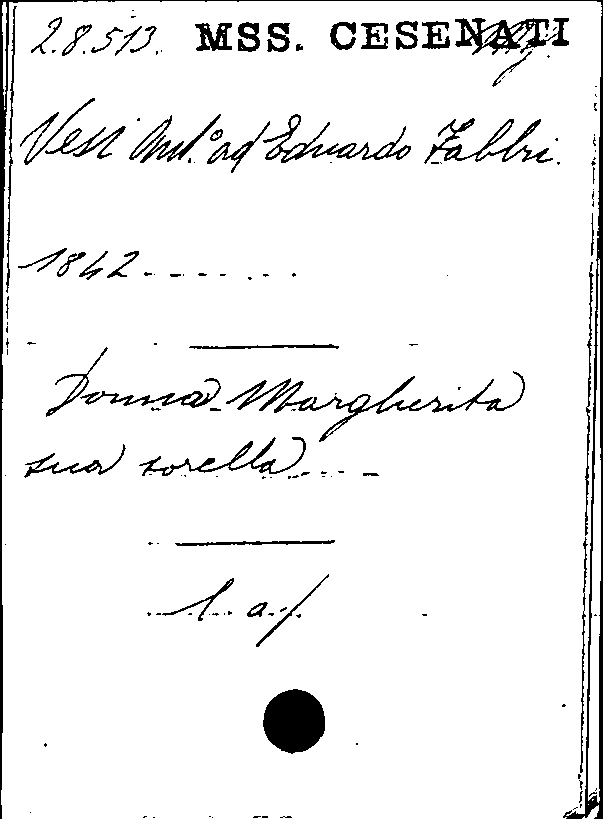 2.8.513. MSS. CESENATI
Vesi Ant.° ad Eduardo Fabbri.
1842 - - - - - - -
Donna Margherita
sua sorella - - - -
l. a/